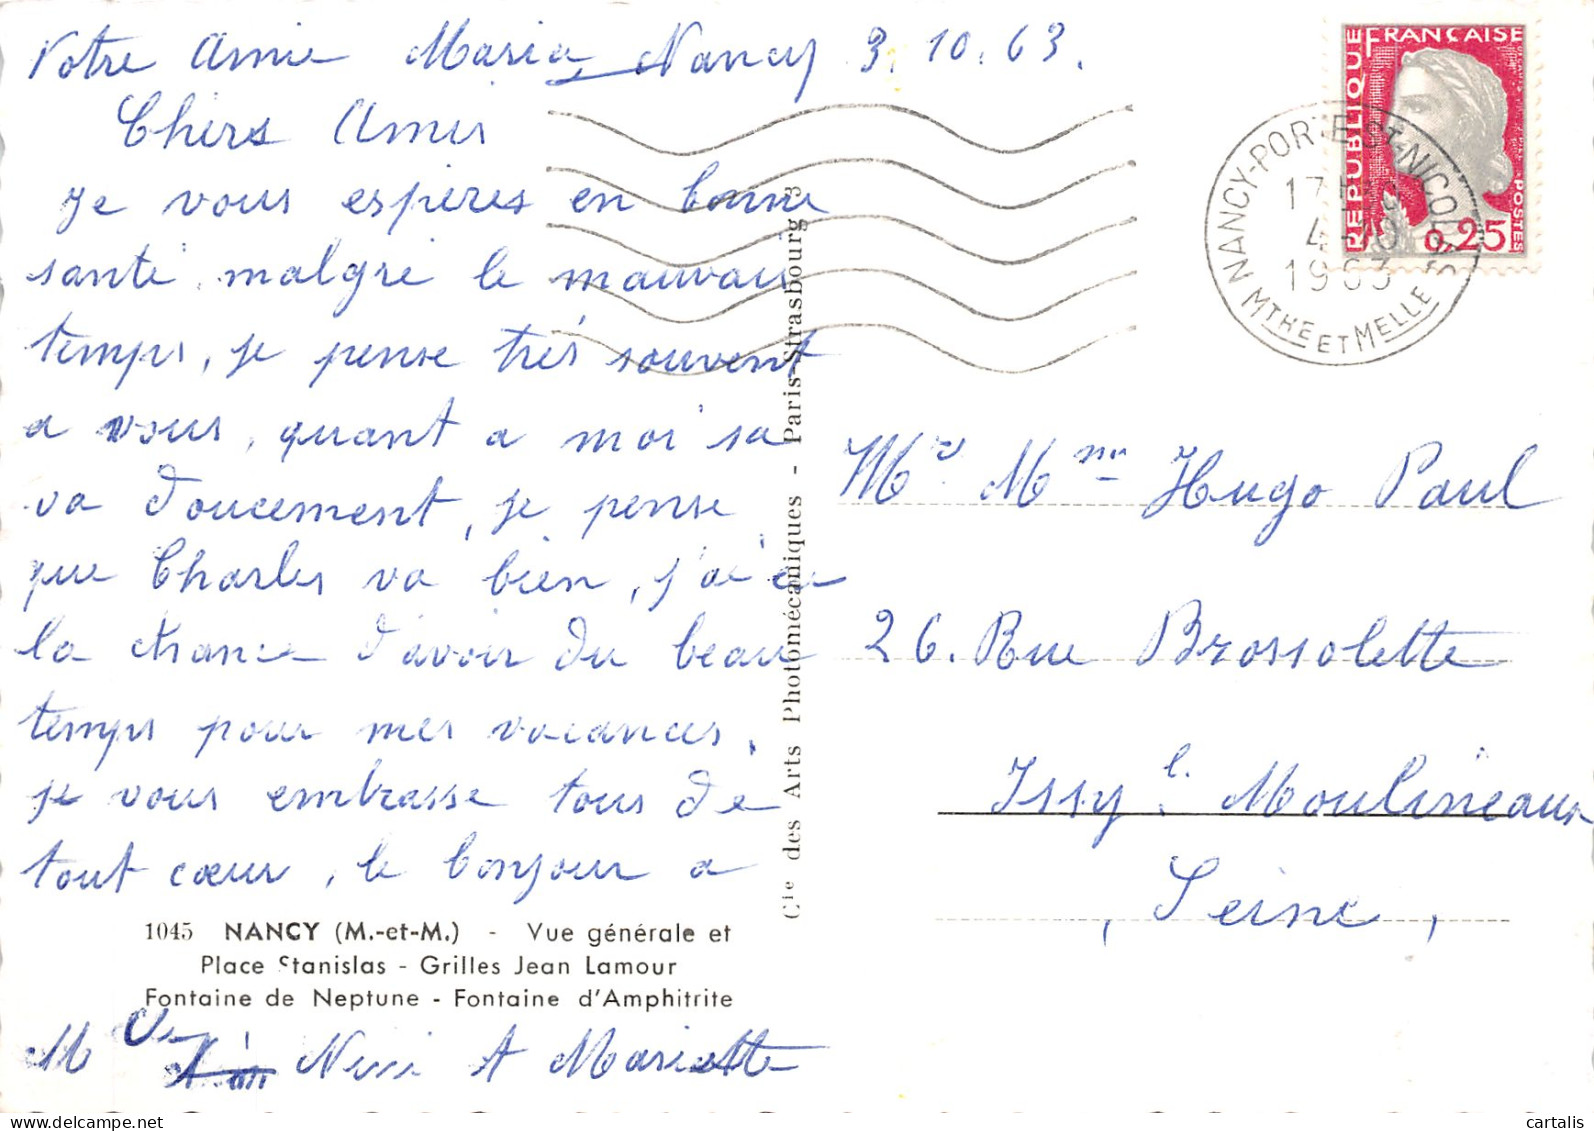 Votre Amie Maria Nancy 3.10.63.
Chers Amis
Je vous espères en bonne
santé, malgré le mauvais
temps, je pense très souvent
a vous, quant a moi sa
va doucement, je pense
que Charles va bien, j'ai eu
la chance d'avoir du beau
temps pour mes vacances,
je vous embrasse tous de
tout cœur, le bonjour a
1045 NANCY (M.-et-M.) - Vue générale et
Place Stanislas - Grilles Jean Lamour
Fontaine de Neptune - Fontaine d'Amphitrite
M Mariette
Cie des Arts Photomécaniques - Paris-Strasbourg 3
REPUBLIQUE FRANCAISE
POSTES
0,25
NANCY-PORTE ST-NICOLAS
17H
4-10
1963
MTHE ET MELLE
Mr Mme Hugo Paul
26. Rue Brossolette
Issy l. Moulineaux
, Seine ,
cartalis.com